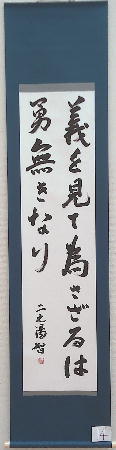 義を見て為さざるは
勇無きなり